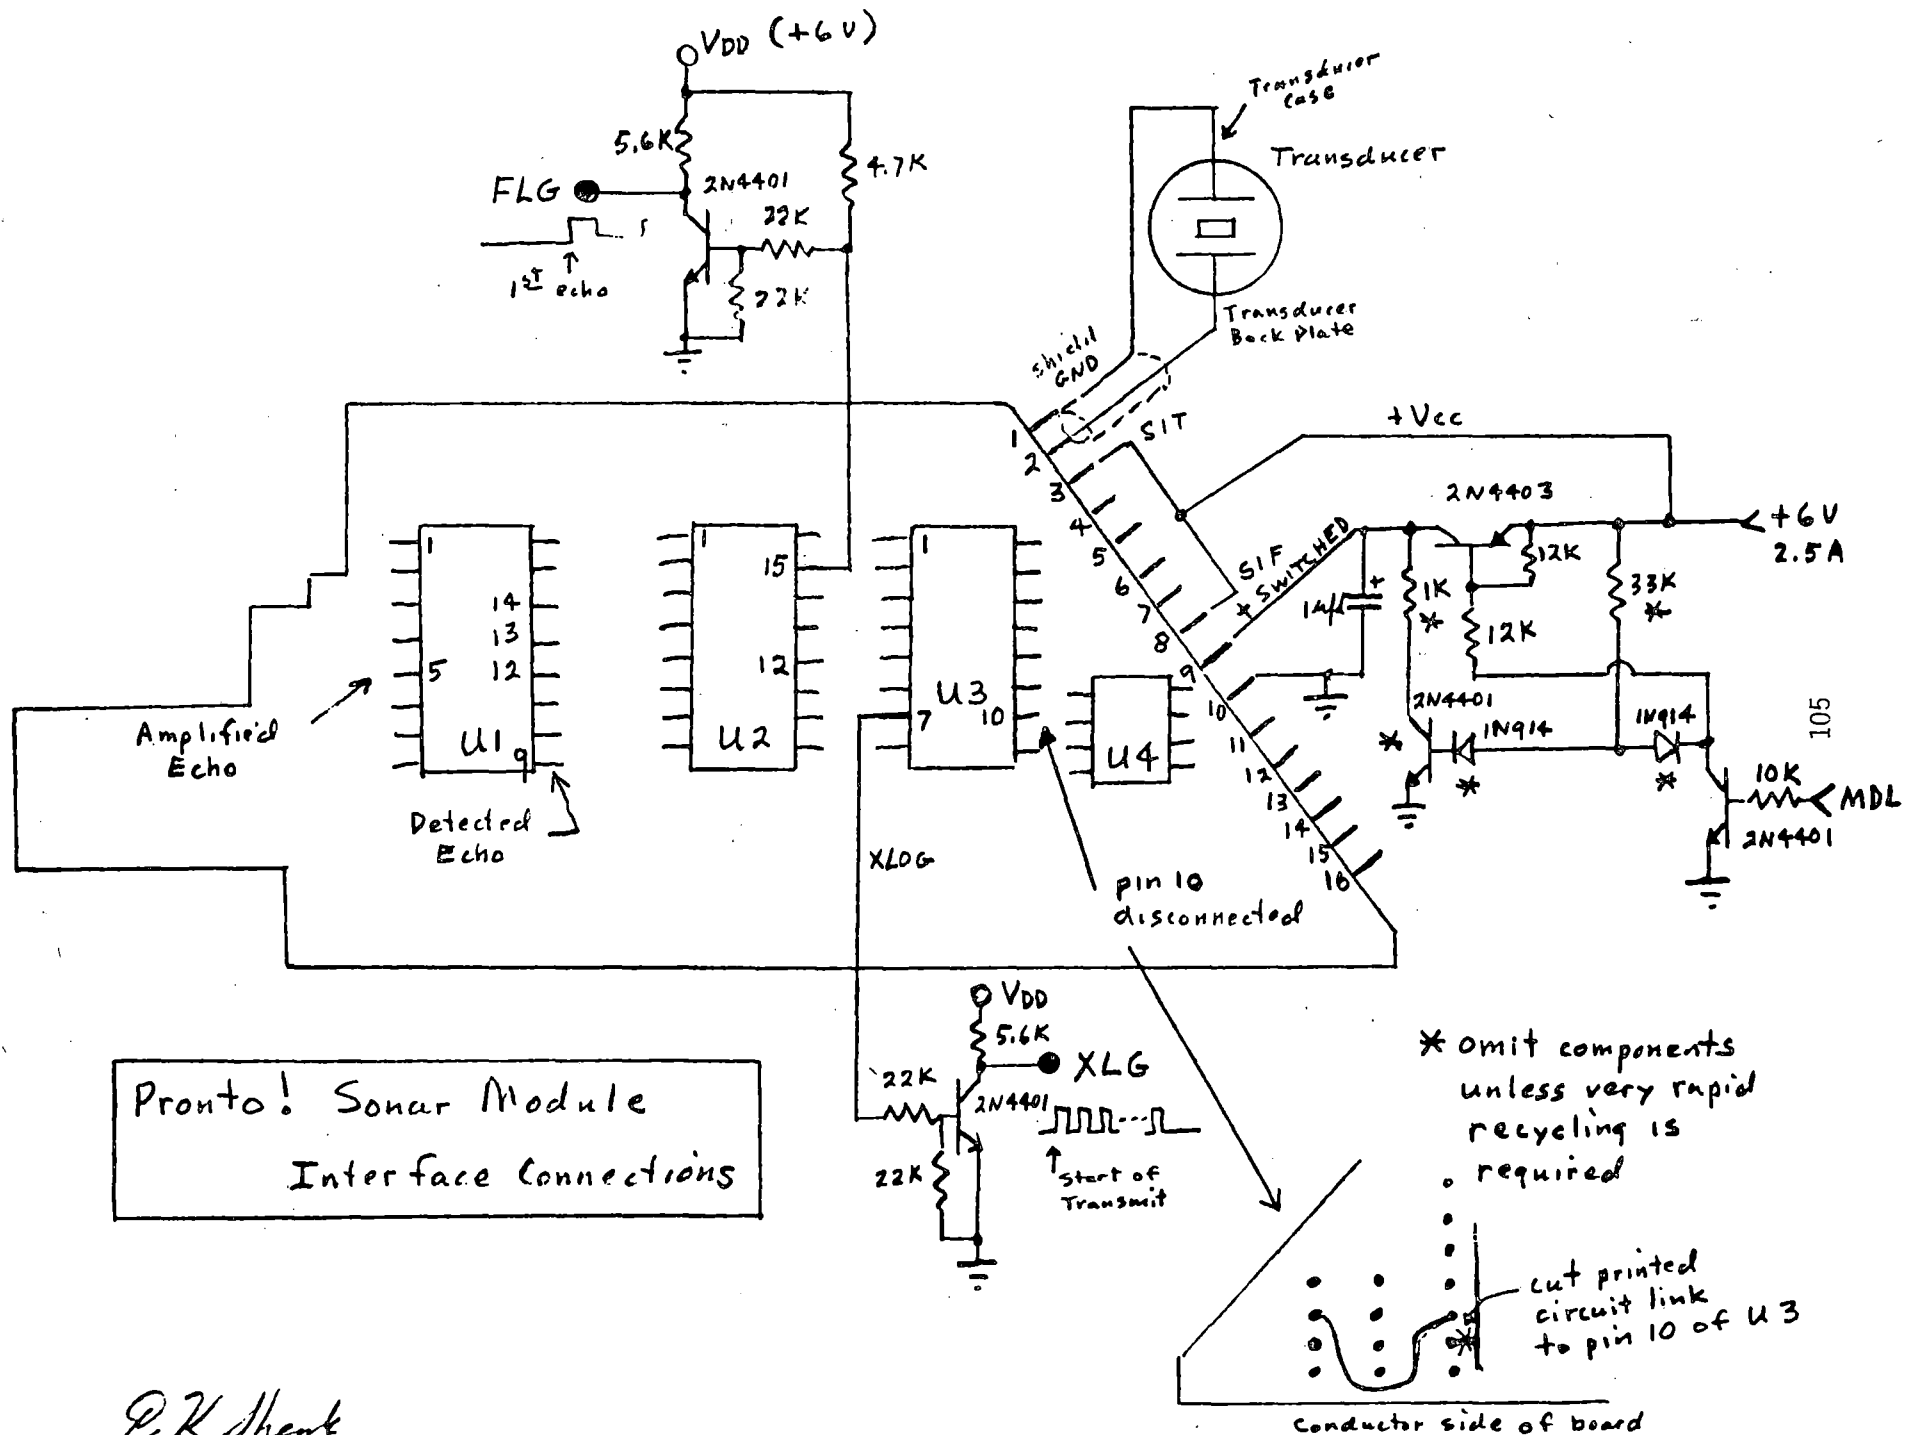 VDD (+6V)
5.6K
4.7K
FLG
2N4401
22K
22K
1st echo
Transducer
Case
Transducer
Transducer
Back Plate
Shield
GND
SIT
+Vcc
1
2
3
4
5
6
7
8
9
10
11
12
13
14
15
16
SIF
+ SWITCHED
2N4403
+6V
2.5A
12K
33K
*
1K
*
12K
+
2N4401
*
1N914
*
1N914
*
10K
MDL
2N4401
105
1
14
13
5
12
U1
9
Amplified
Echo
Detected
Echo
1
15
12
U2
1
U3
7
10
U4
XLOG
pin 10
disconnected
VDD
5.6K
XLG
22K
2N4401
22K
Start of
Transmit
Pronto! Sonar Module
Interface Connections
* omit components
unless very rapid
recycling is
required
cut printed
circuit link
to pin 10 of U3
*
Conductor side of board